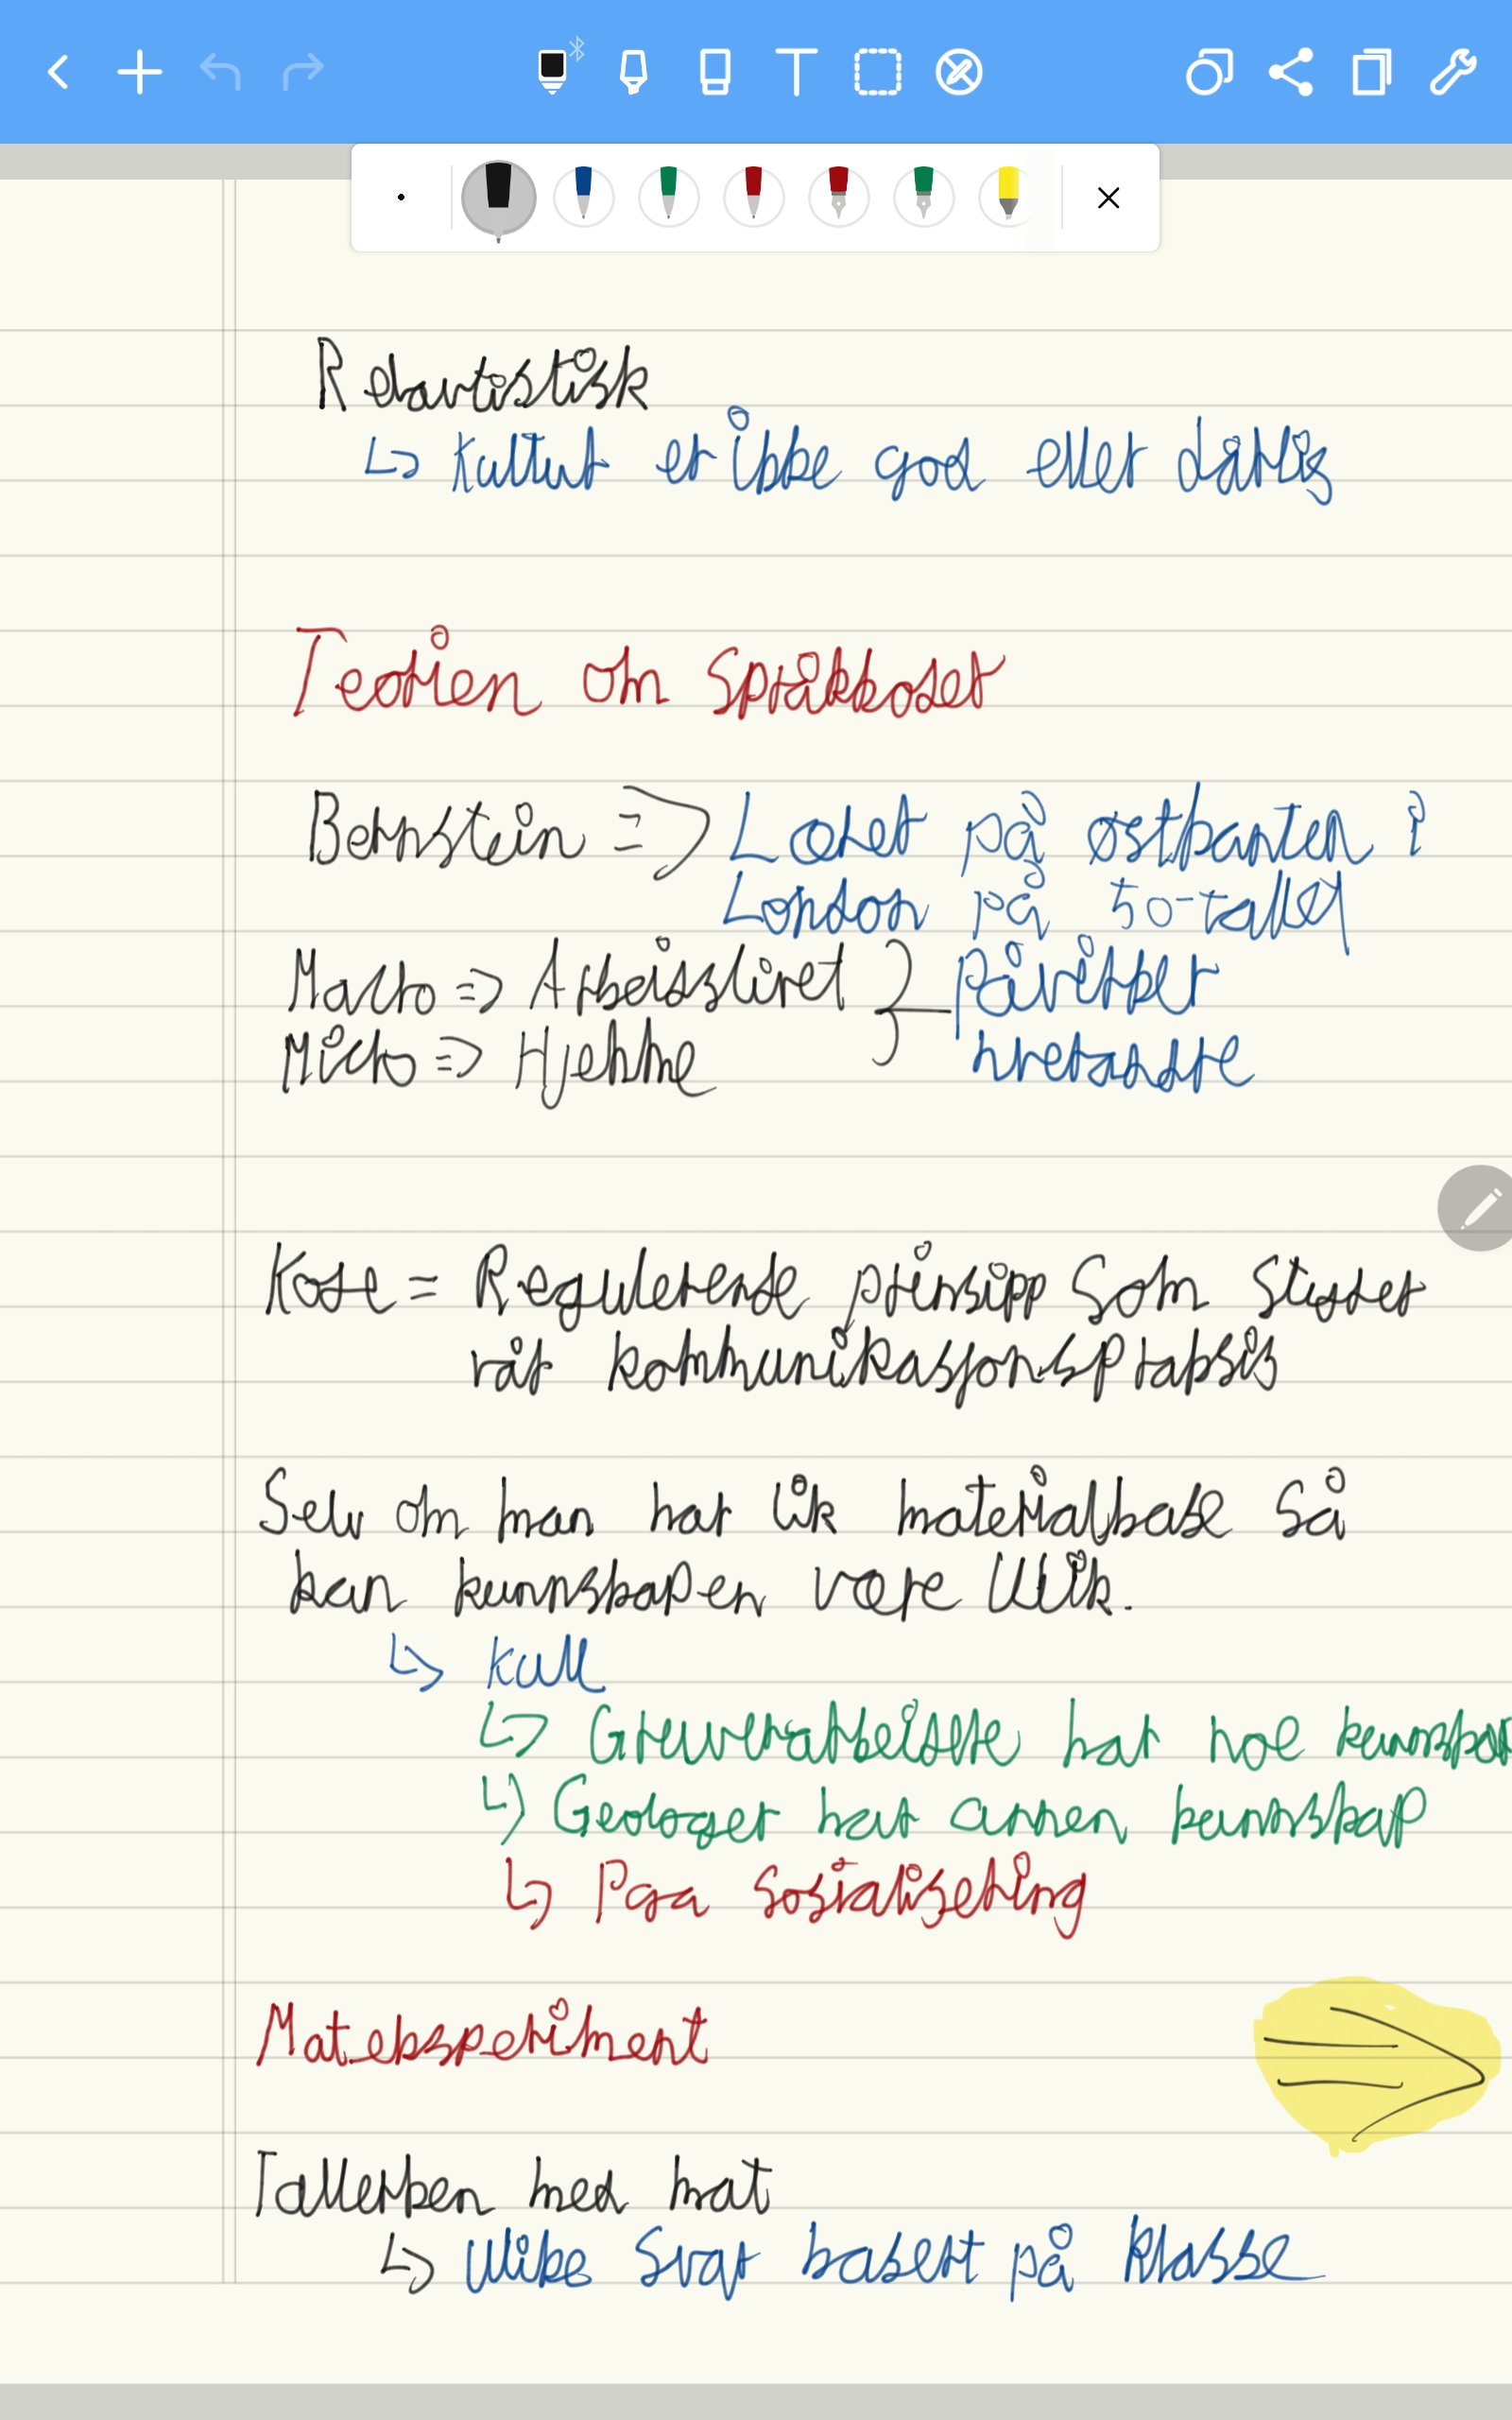 Relativistisk
↳ Kultur er ikke god eller dårlig
Teorien om Språkkoder
Bernstein => Lærer på østkanten i
London på 50-tallet
Makro => Arbeidslivet } påvirker
Micro => Hjemme hverandre
Kode = Regulerende prinsipp som styrer
vår kommunikasjonspraksis
Selv om man har lik materialbase så
kan kunnskapen være Ulik.
↳ Kull
↳ Gruvearbeidere har noe kunnskap
↳ Geologer har annen kunnskap
↳ Pga sosialisering
Mateksperiment
=>
Tallerken med mat
↳ Ulike svar basert på klasse